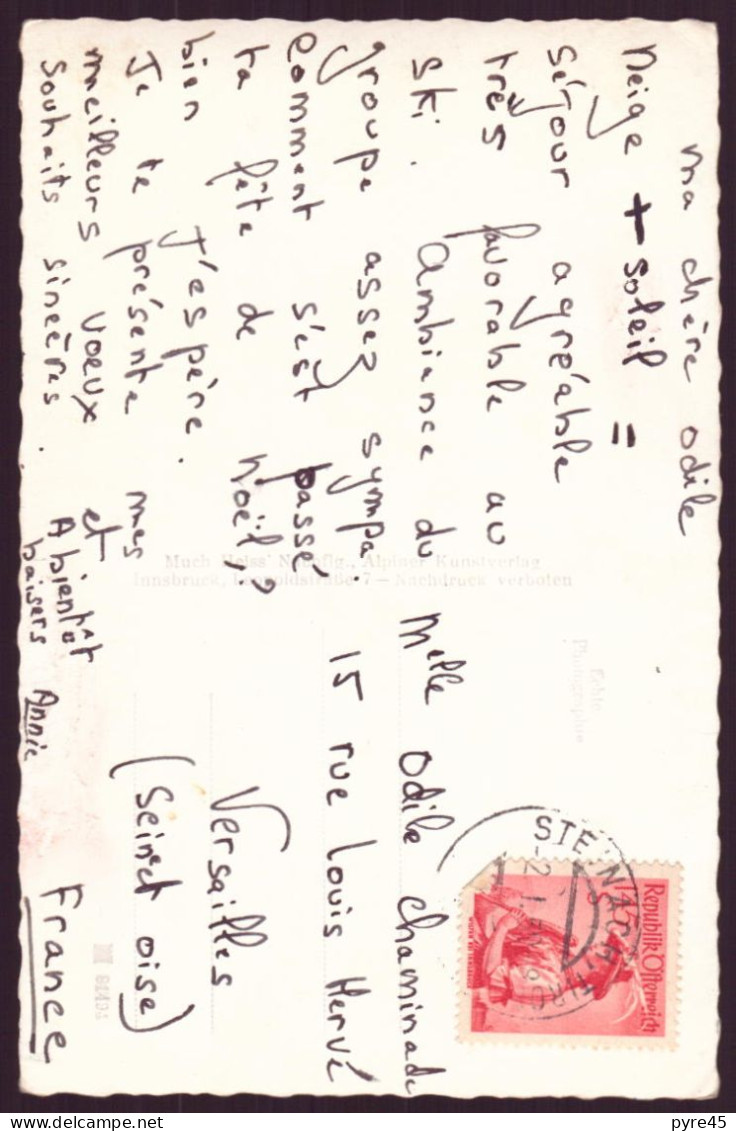 ma chère odile
Neige + soleil =
séjour agréable
très favorable au
ski. Ambiance du
groupe assez sympa.
Comment s'est passé
ta fête de Noël,?
bien J'espère.
Je te présente mes
meilleurs voeux et
souhaits sincères.
A bientôt
baisers Annie
Much Heiss' Nachflg., Alpiner Kunstverlag
Innsbruck, Leopoldstraße 7 — Nachdruck verboten
Echte
Photographie
Melle odile chaminade
15 rue Louis Hervé
Versailles
(Seine et oise)
France
STEINACH
Republik Österreich
1.45
pyre45